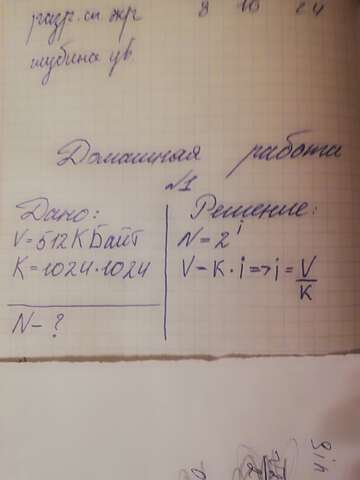 разр. сп жр 8 16 24
глубина цв.
Домашняя работа
№1
Дано:
V=512 КБайт
K=1024·1024
N-?
Решение:
N=2^i
V-K·i=>i=V/K